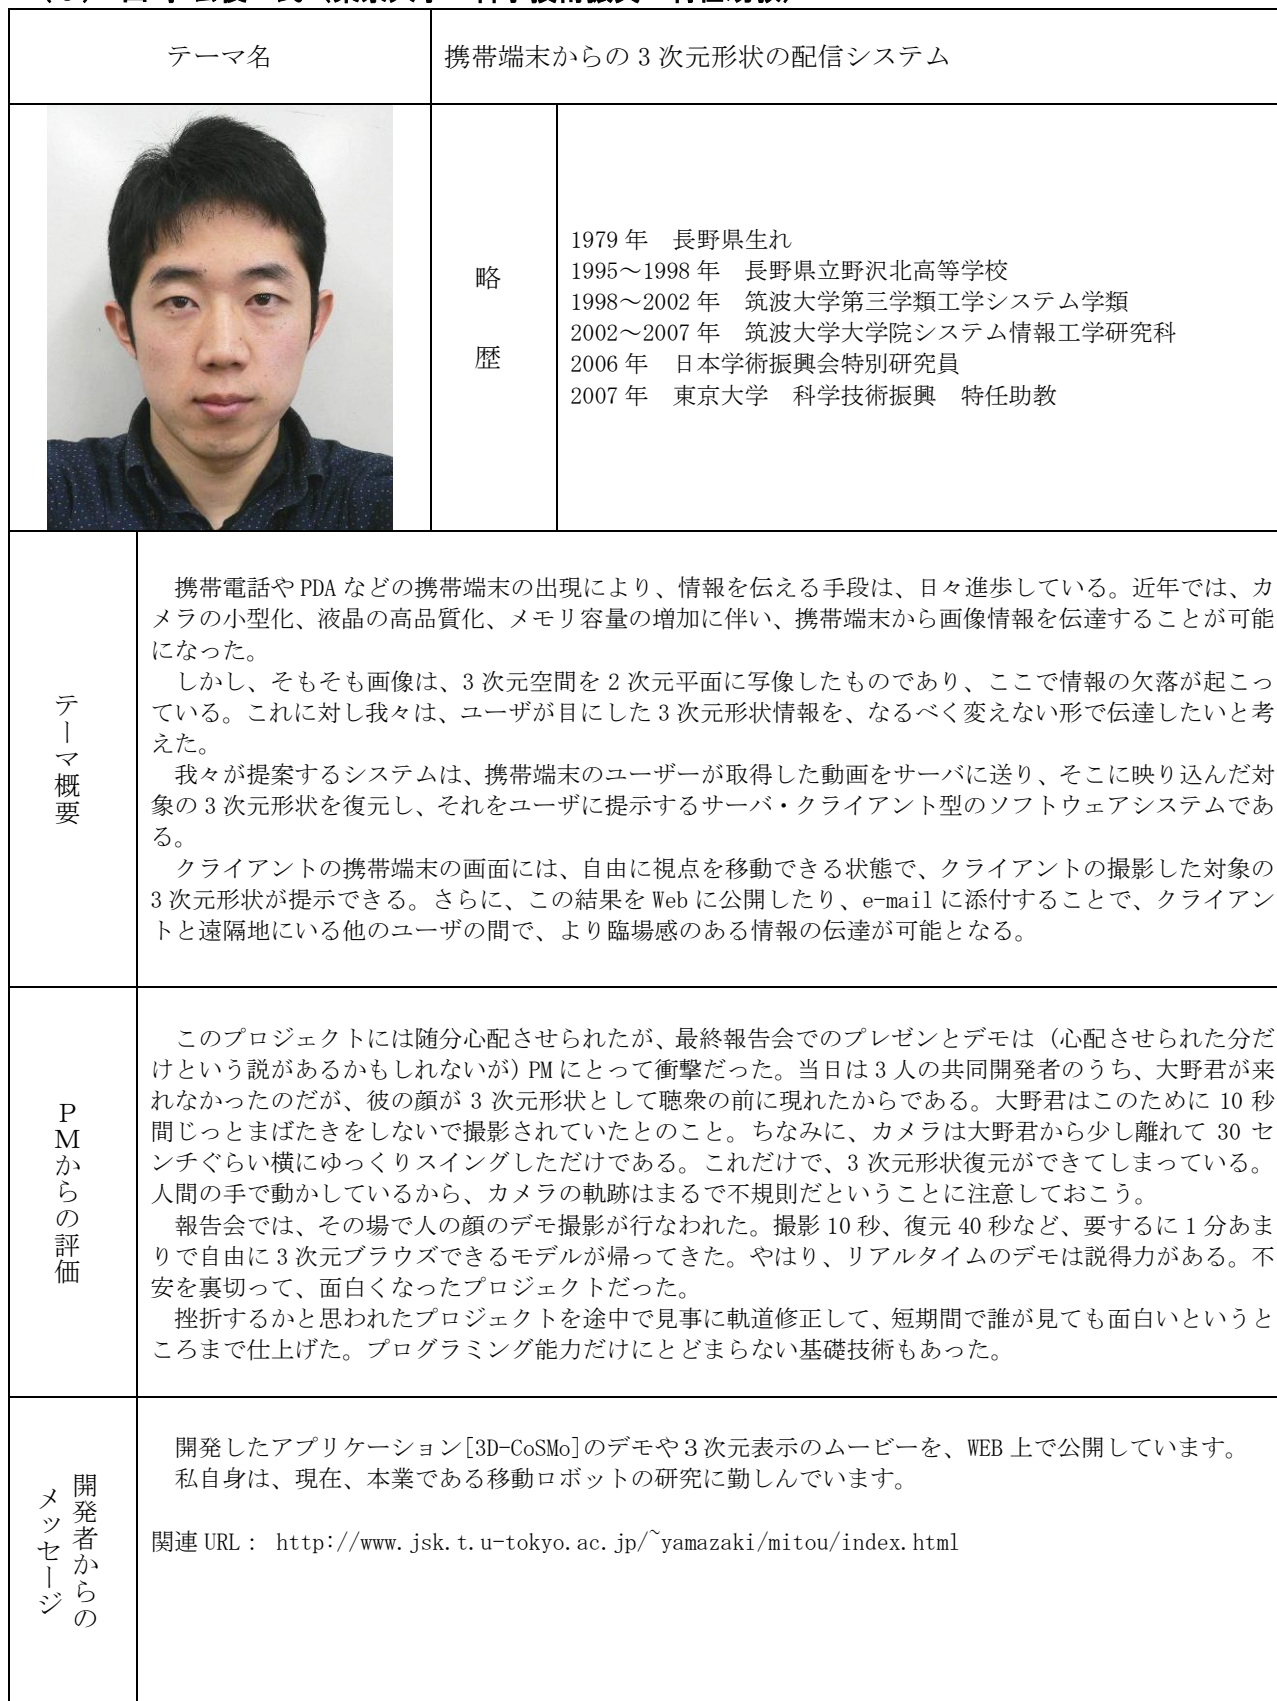 テーマ名
携帯端末からの 3 次元形状の配信システム
略
歴
1979 年　長野県生れ
1995～1998 年　長野県立野沢北高等学校
1998～2002 年　筑波大学第三学類工学システム学類
2002～2007 年　筑波大学大学院システム情報工学研究科
2006 年　日本学術振興会特別研究員
2007 年　東京大学　科学技術振興　特任助教
テーマ概要
携帯電話や PDA などの携帯端末の出現により、情報を伝える手段は、日々進歩している。近年では、カ
メラの小型化、液晶の高品質化、メモリ容量の増加に伴い、携帯端末から画像情報を伝達することが可能
になった。
しかし、そもそも画像は、3 次元空間を 2 次元平面に写像したものであり、ここで情報の欠落が起こっ
ている。これに対し我々は、ユーザが目にした 3 次元形状情報を、なるべく変えない形で伝達したいと考
えた。
我々が提案するシステムは、携帯端末のユーザーが取得した動画をサーバに送り、そこに映り込んだ対
象の 3 次元形状を復元し、それをユーザに提示するサーバ・クライアント型のソフトウェアシステムであ
る。
クライアントの携帯端末の画面には、自由に視点を移動できる状態で、クライアントの撮影した対象の
3 次元形状が提示できる。さらに、この結果を Web に公開したり、e-mail に添付することで、クライアン
トと遠隔地にいる他のユーザの間で、より臨場感のある情報の伝達が可能となる。
ＰＭからの評価
このプロジェクトには随分心配させられたが、最終報告会でのプレゼンとデモは（心配させられた分だ
けという説があるかもしれないが）PM にとって衝撃だった。当日は 3 人の共同開発者のうち、大野君が来
れなかったのだが、彼の顔が 3 次元形状として聴衆の前に現れたからである。大野君はこのために 10 秒
間じっとまばたきをしないで撮影されていたとのこと。ちなみに、カメラは大野君から少し離れて 30 セ
ンチぐらい横にゆっくりスイングしただけである。これだけで、3 次元形状復元ができてしまっている。
人間の手で動かしているから、カメラの軌跡はまるで不規則だということに注意しておこう。
報告会では、その場で人の顔のデモ撮影が行なわれた。撮影 10 秒、復元 40 秒など、要するに 1 分あま
りで自由に 3 次元ブラウズできるモデルが帰ってきた。やはり、リアルタイムのデモは説得力がある。不
安を裏切って、面白くなったプロジェクトだった。
挫折するかと思われたプロジェクトを途中で見事に軌道修正して、短期間で誰が見ても面白いというと
ころまで仕上げた。プログラミング能力だけにとどまらない基礎技術もあった。
開発者からの
メッセージ
開発したアプリケーション[3D-CoSMo]のデモや３次元表示のムービーを、WEB 上で公開しています。
私自身は、現在、本業である移動ロボットの研究に勤しんでいます。
関連 URL： http://www.jsk.t.u-tokyo.ac.jp/~yamazaki/mitou/index.html